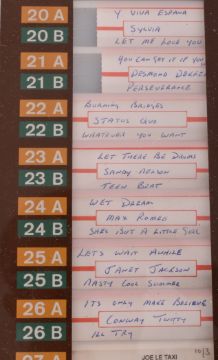 20 A
Y VIVA ESPANA
SYLVIA
20 B
LET ME LOVE YOU
21 A
YOU CAN GET IT IF YOU
DESMOND DEKKER
21 B
PERSEVERANCE
22 A
BURNING BRIDGES
STATUS QUO
22 B
WHATEVER YOU WANT
23 A
LET THERE BE DRUMS
SANDY NELSON
23 B
TEEN BEAT
24 A
WET DREAM
MAX ROMEO
24 B
SHES BUT A LITTLE GIRL
25 A
LETS WAIT AWHILE
JANET JACKSON
25 B
NASTY COOL SUMMER
26 A
ITS ONLY MAKE BELIEVE
CONWAY TWITTY
26 B
ILL TRY
JOE LE TAXI